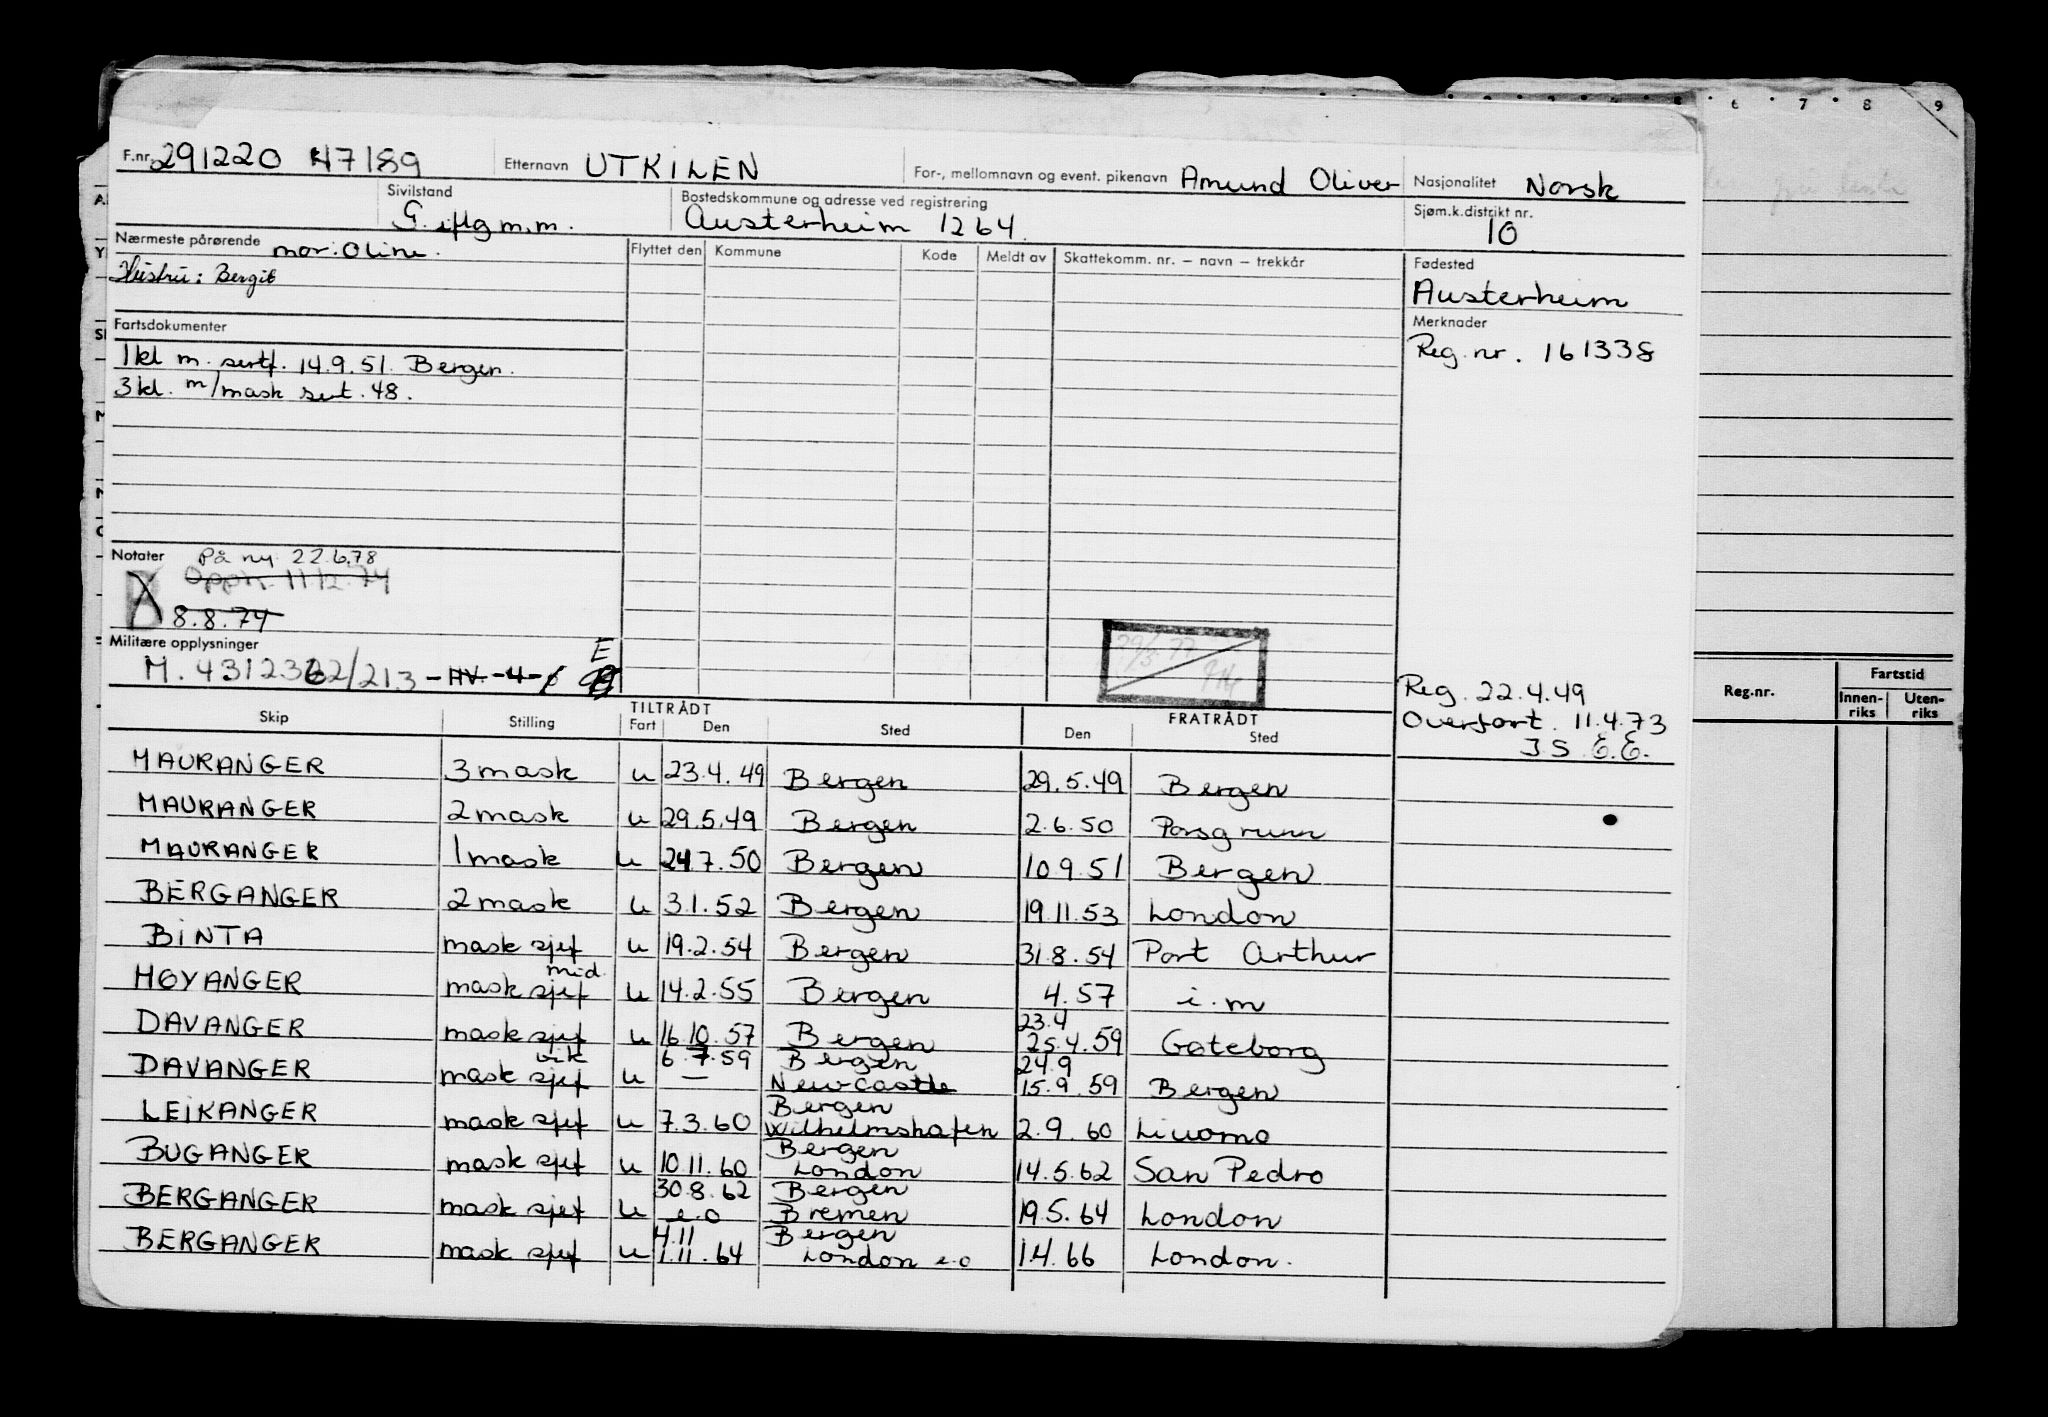 6 7 8 9
F.nr. 291220 47189 Etternavn UTKILEN For-, mellomnavn og event. pikenavn Amund Oliver Nasjonalitet Norsk
Sivilstand Giftg m.m. Bostedskommune og adresse ved registrering Austerheim 1264. Sjøm.k.distrikt nr. 10
Nærmeste pårørende mor: Oline.
Hustru: Bergit
Flyttet den Kommune Kode Meldt av Skattekomm. nr. – navn – trekkår
Fødested
Austerheim
Merknader
Reg. nr. 161338
Fartsdokumenter
1kl m. sertf. 14.9.51. Bergen.
3kl. m/mask sert. 48.
Notater På ny 22.6.78
Oppn. 11/2.74
8.8.74
Militære opplysninger E
M. 431232/213 - HV. - 4 -
29/3 77
Reg. 22.4.49
Overført. 11.4.73
J S. E.E.
Reg.nr. Fartstid
Innen-riks Uten-riks
TILTRÅDT FRATRÅDT
Skip Stilling Fart Den Sted Den Sted
MAURANGER 3 mask u 23.4.49 Bergen 29.5.49 Bergen
MAURANGER 2 mask u 29.5.49 Bergen 2.6.50 Porsgrunn
MAURANGER 1 mask u 24.7.50 Bergen 10 9.51 Bergen
BERGANGER 2 mask u 3.1.52 Bergen 19.11.53 London
BINTA mask sjef u 19.2.54 Bergen 31.8.54 Port Arthur
HØYANGER mask sjef mid. u 14.2.55 Bergen 4.57 i.m
DAVANGER mask sjef u 16.10.57 Bergen 23.4 25.4.59 Gøteborg
DAVANGER mask sjef vik u 6.7.59 — Bergen New Castle 24.9 15.9.59 Bergen
LEIKANGER mask sjef u 7.3.60 Bergen Wilhelmshafen 2.9.60 Livorno
BUGANGER mask sjef u 10.11.60 Bergen London 14.5.62 San Pedro
BERGANGER mask sjef u 30.8.62 e.o Bergen Bremen 19.5.64 London
BERGANGER mask sjef u 4.11 1.11.64 Bergen London e.o 1.4.66 London.